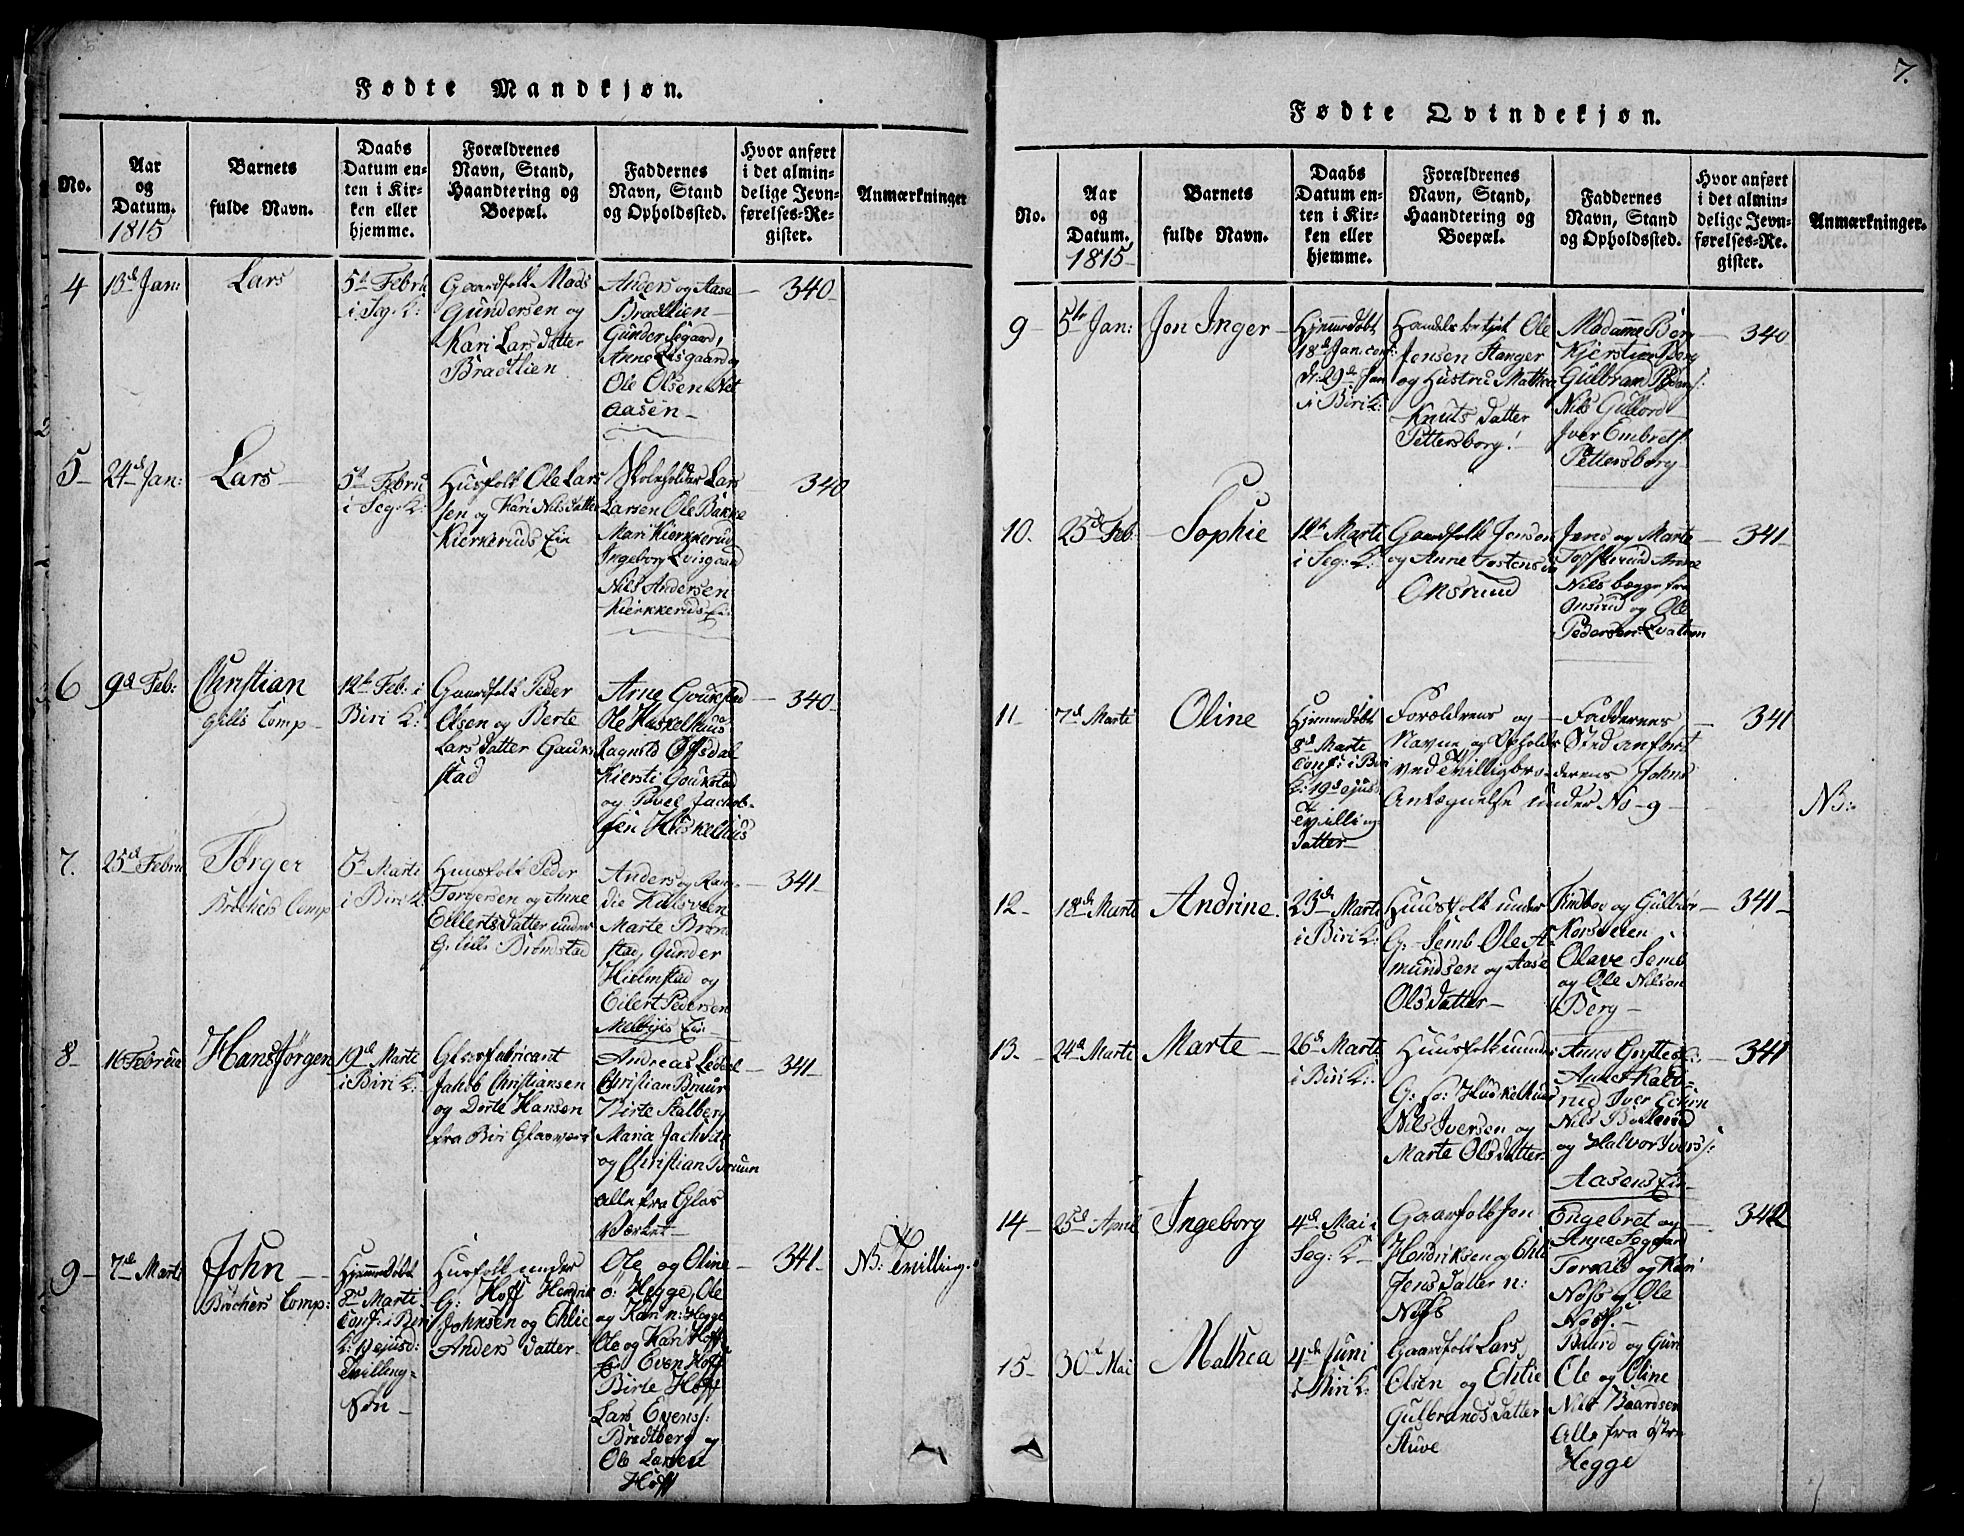 Fødte Mandkjøn.
No.
Aar
og
Datum.
1815
Barnets
fulde Navn.
Daabs
Datum en-
ten i Kir-
ken eller
hjemme.
Forældrenes
Navn, Stand,
Haandtering og
Boepæl.
Faddernes
Navn, Stand
og Opholdssted.
Hvor anført
i det almin-
delige Jevn-
førelses-Re-
gister.
Anmærkninger
4
13d Jan:
Lars
5t Febru
i Seg. K:
Gaardfolk Mads
Gundersen og
Kari Lars datter
Bradtlien
Anders og Aase
Bradtlien
Gunder
Anne Lisgaard og
Ole Olsen
Aasen
340
5
24d Jan:
Lars
5t Febru
i Seg. K:
Husfolk Ole Lars
sen og Kari Nilsdatter
Kierkeruds Eie
Skoleholder Lars
Larsen Ole Bakke
Mari Kierkkerud
Ingeborg
Nils Andersen
Kierkkeruds E:
340
6
9d Feb:
Christian
12t Feb: i
Biri K:
Gaardfolk Peder
Olsen og Berte
Lars datter Gauk
stad
Arne Goukstad
Ole Haskelhuus
Ragnild
Kiersti Goukstad
og Povel Jachob-
sen Huskelhus
340
7.
25d Febru
Tørger
5t Marti
i Biri K:
Huusfolk Peder
Torgersen og Anne
Eillerts datter under
G. Lille Bromstad
Anders og Ran-
die Kalsveen
Marte Brom
stad, Gunder
Hielmstad og
Eilert Pedersen
Melbyis Eie
341
8
16 Februa
Hans Jørgen
19d Marti
i Biri K:
Glasfabricant
Jakob Christiansen
og Dorte Hansen
fra Biri Glasværk
Andreas
Christian Bruun
Birte Stalberg
Maria
og Christian Bruun
alle fra Glas
Værket
341
9
7de Marti
John
Hjemmedøbt
8d Marti
Conf: i Biri
K: 19 ejusd:
Tvilling-
Søn
Husfolk under
G: Hoff Hendrik
Johnsen og Ehlie
Anders datter
Ole og Oline
ø: Hegge, Ole
og Kari n: Hegge
Ole og Kari Hoff
Even Hoff
Birte Hoff
Lars Evens:
Bredtberg og
Ole Larsen
Hoff
341
NB: Tvilling.
7.
Fødte Qvindekjøn.
No.
Aar
og
Datum.
1815
Barnets
fulde Navn.
Daabs
Datum en-
ten i Kir-
ken eller
hjemme.
Forældrenes
Navn, Stand,
Haandtering og
Boepæl.
Faddernes
Navn, Stand
og Opholdssted.
Hvor anført
i det almin-
delige Jevn-
førelses-Re-
gister.
Anmærkninger.
9
5te Jan:
Jon Inger
Hjemmedøbt
18d Jan. conf:
d: 29d Jan
i Biri K:
Handels betjent Ole
Jensen Stanger
og Hustru Mathea
Knuts datter
Pettersborg
Madamme Berg
Kjerstine Berg
Gulbran
Nils Gullord
Iver Embrets:
Pettersborg
340
10
25d Feb:
Sophie
12te Marti
i Seg: K:
Gaardfolk Jens
og Anne Tostens
Onsrud
Jens og Marte
Anne
Nils begge fra
Onsrud og Ole
Pedersen
341
11
7d Marti
Oline
Hjemmedøbt
8d Marti
Conf: i Biri
K: 19d ejusd
Tvilling
datter
Forældrenes og
Navne og Opholds
ved Tvillingbro
Antegnelse under No 9
Faddernes
Sted anført
derens Johns
341
NB:
12
18de Marti
Andrine
23de Marti
i Biri K:
Huusfolk under
G: Semb Ole A-
mundsen og Aase
Olsdatter
Gulbrør
Korsveien
Olave Semb
og Ole Nilsen
Berg
341
13
24d Marti
Marte
26d Marti
i Biri K:
Huusfolk under
G: sø: Huskelhuus
Nils Iversen og
Marte Olsdatter
Anne
rud Iver
Nils
og Halvor Ivers:
Aasens Eie
341
14
25d April
Ingeborg
4d Mai i
Seg: K
Gaarfolk Jon
Hendriksen og Ehli
Jens datter n:
Engebret og
Anne Seggaard
og Kari
og Ole
342
15
30d Mai
Mathea
4d Juni
i Biri K:
Gaardfolk Lars
Olsen og Ehlie
Gulbrands datter
Stuve
Baard og Guri
Ole og Oline
Nils Baardsen
Alle fra østre
Hegge